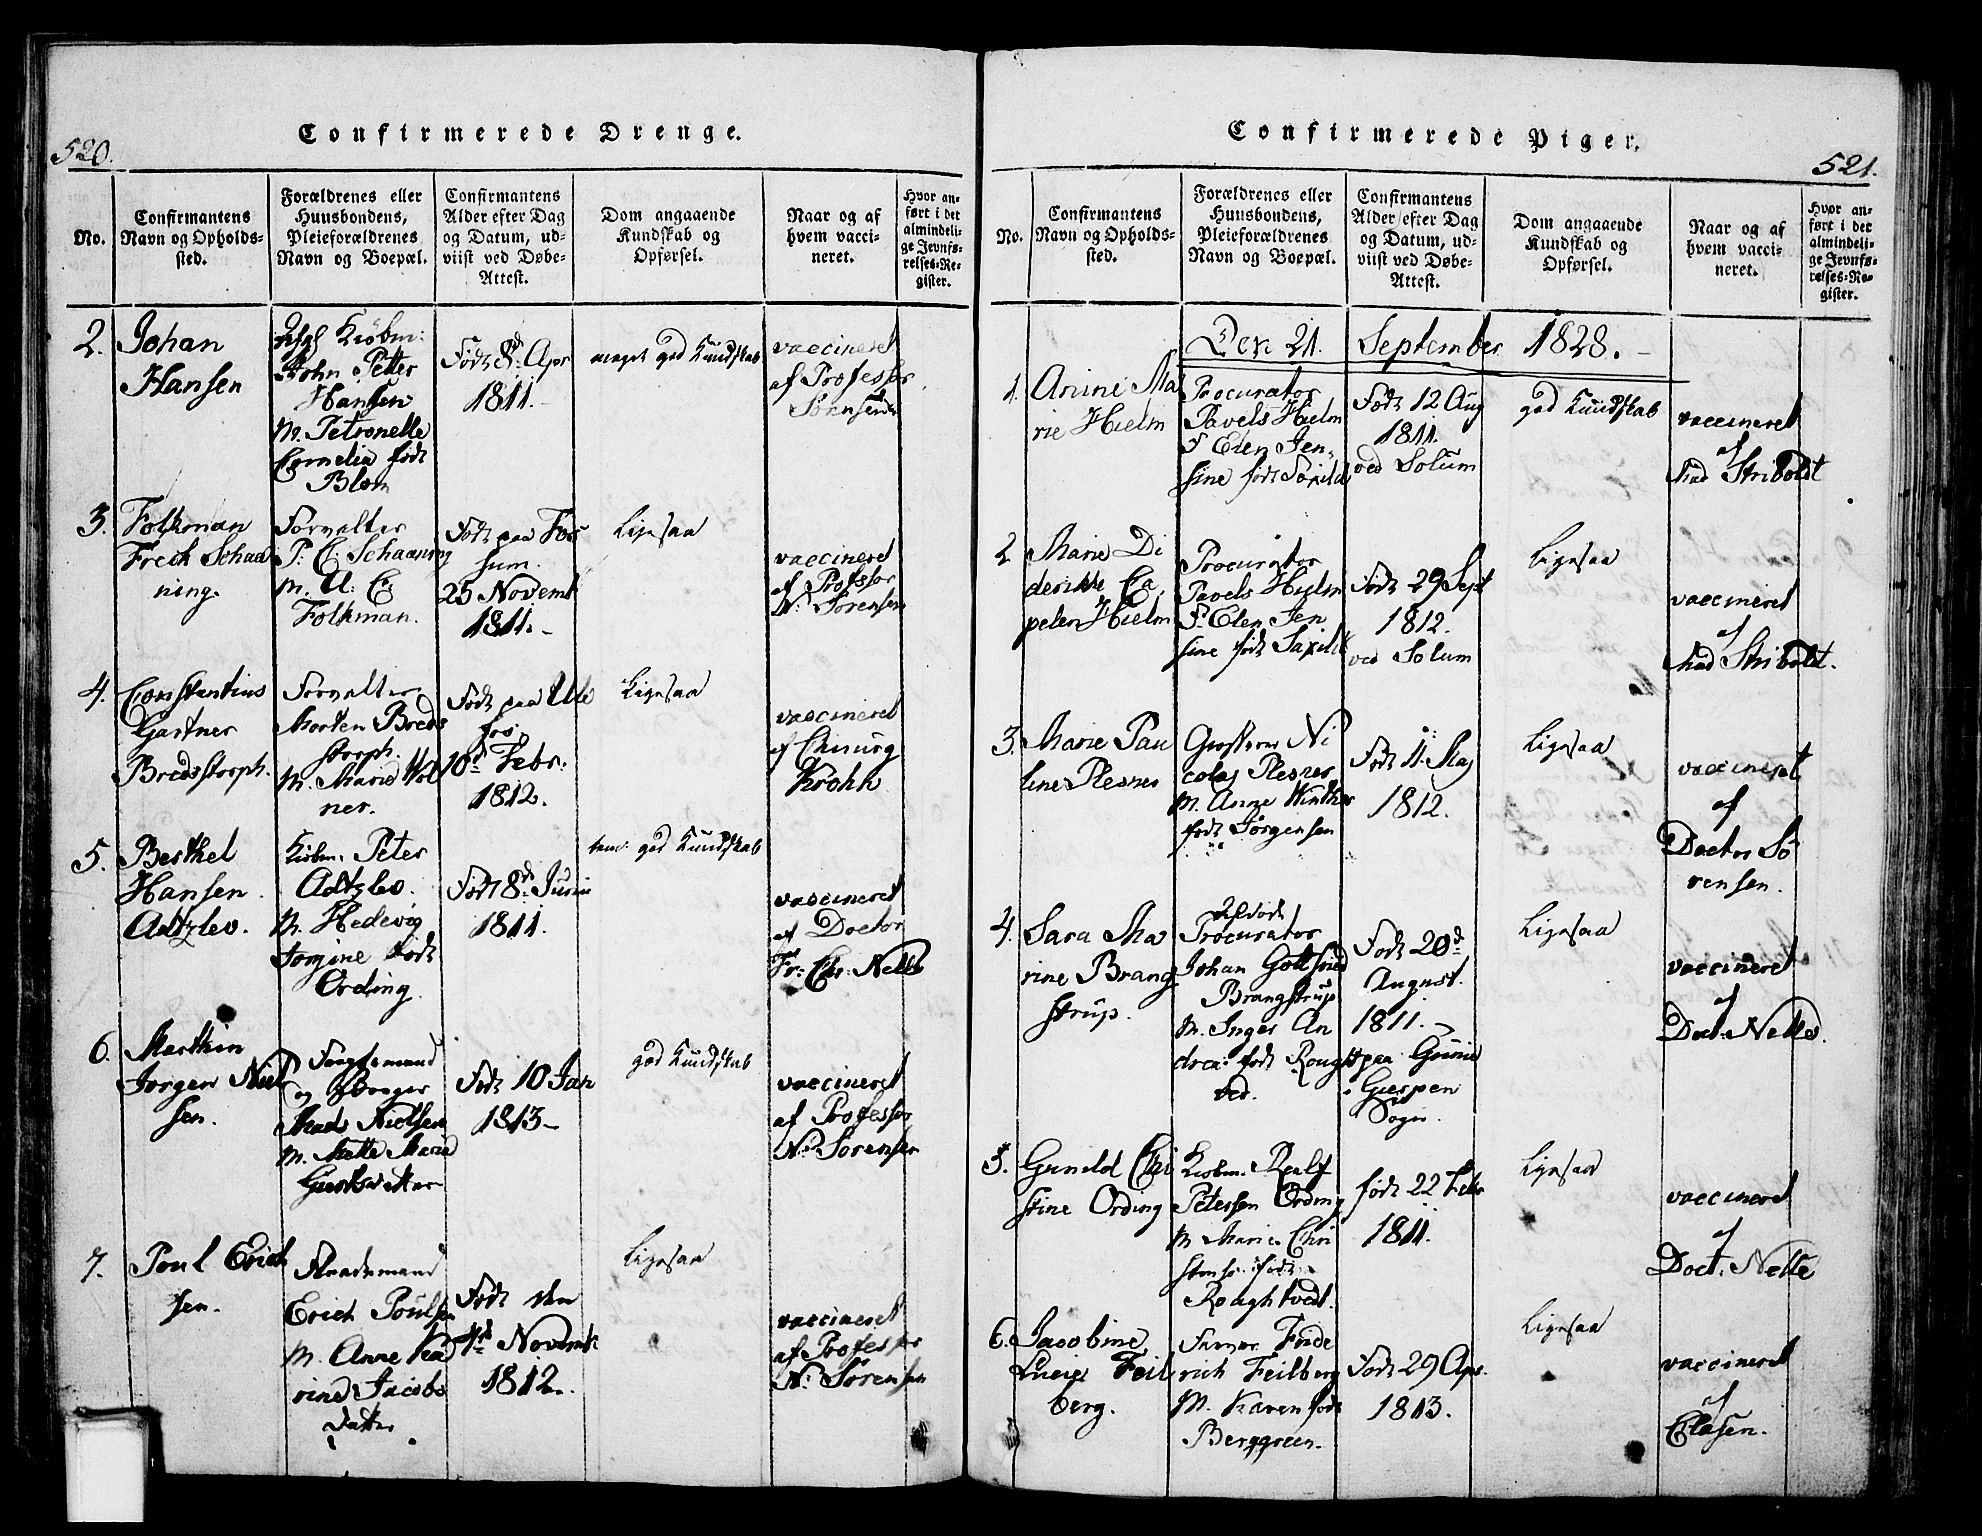 520.
Confirmerede Drenge.
No.
Confirmantens
Navn og Opholds-
sted.
Forældrenes eller
Huusbondens,
Pleieforældrenes
Navn og Boepæl.
Confirmantens
Alder efter Dag
og Datum, ud-
viist ved Døbe-
Attest.
Dom angaaende
Kundskab og
Opførsel.
Naar og af
hvem vacci-
neret.
Hvor an-
ført i det
almindeli-
ge Jevnfø-
relses-Re-
gister.
2.
Johan
Hansen
Kiøbm:
John Petter
Hansen
M. Petronelle
Cornelia født
Blom
Født 8d. Apr
1811.-
meget god Kundskab
vaccineret
af Professor
Sørensen
3.
Folkman
Fredr Schaa
ning.
Forvalter
P. C. Schaaning
M. U: C.
Folkman.
Født paa Fos
sum.
25 Novemb
1811.-
Ligesaa
vaccineret
af Profssor
N. Sørensen
4.
Constantius
Gartner
Bredsstorph.
Forvalter
Morten Breds
storph.
M. Marie Wol
ner.
Født paa Ule
fos
10d. Febr.
1812.
Ligesaa
vaccineret
af Chirurg
Krohh
5.
Berthel
Hansen
Adtzlev.
Kiøbm. Peter
Adtzlev.
M. Hedevig
Jørgine født
Ording.
Født 8d. Junii
1811.
tem. god Kundskab
vaccineret
af Doctor
Fr: Chr: Nelle
6.
Marthin
Jørgen Niel
sen.
og Borger
Mads Nielsen
M. Mette Marie
Født 10 Jan
1813-
god Kundskab
vaccineret
af Professor
N. Sørensen
7.
Poul Erich
sen.
Strandemand
Erich Poulsen
M. Anne Ka
rine Jacobs
datter
Født den
4d. Novemb
1812.
Ligesaa
vaccineret
af Professor
N. Sørensen
521.
Confirmerede Piger.
No.
Confirmantens
Navn og Opholds-
sted.
Forældrenes eller
Huusbondens,
Pleieforældrenes
Navn og Boepæl.
Confirmantens
Alder efter Dag
og Datum, ud-
viist ved Døbe-
Attest.
Dom angaaende
Kundskab og
Opførsel.
Naar og af
hvem vacci-
neret.
Hvor an-
ført i det
almindeli-
ge Jevnfø-
relses-Re-
gister.
Den 21. September 1828.-
1.
Anine Ma
rie Hielm
Procurator
Pavels Hielm
Elen Jen
sine født Saxild
Født 12 Aug
1811.
ved Solum
god Kundskab
vaccineret
af
Mad Stribolt
2
Marie Di
derikke Ca
pelen Hielm
Procurator
Pavels Hielm
Elen Jen
sine født Saxild
Født 29 Sept
1812.
ved Solum
Ligesaa
vaccineret
af
Mad Stribolt.
3.
Marie Pau
line Plesner
Ni
colaj Plesner
M. Anne Winther
født Jørgensen
Født 11. Maj
1812.
Ligesaa
vaccineret
af
Doctor Sø
rensen.
4.
Sara Ma
rine Brang
strup.
Procurator
Johan Gottfried
Brangstrup
M. Inger An
drea: født Rought
ved.
Født 20d.
August.
1811.-
paa Grinie
i Gierpen
Sogn.
Ligesaa
vaccineret
af
Doct. Nelle.
5.
Gunild Chri
stine Ording
Kiøbm. Realf
Petersen Ording
M Marie Chri
stense født
Roughtvedt.
født 22 Febr
1811.
Ligesaa
vaccineret
af
Doct. Nelle
6.
Jacobine
Lucie Feil
berg.
Farver Fride
rich Feilberg
M. Karen født
Berggreen.
Født 29 Apr.
1813.
Ligesaa
vaccineret
af
Clasen.